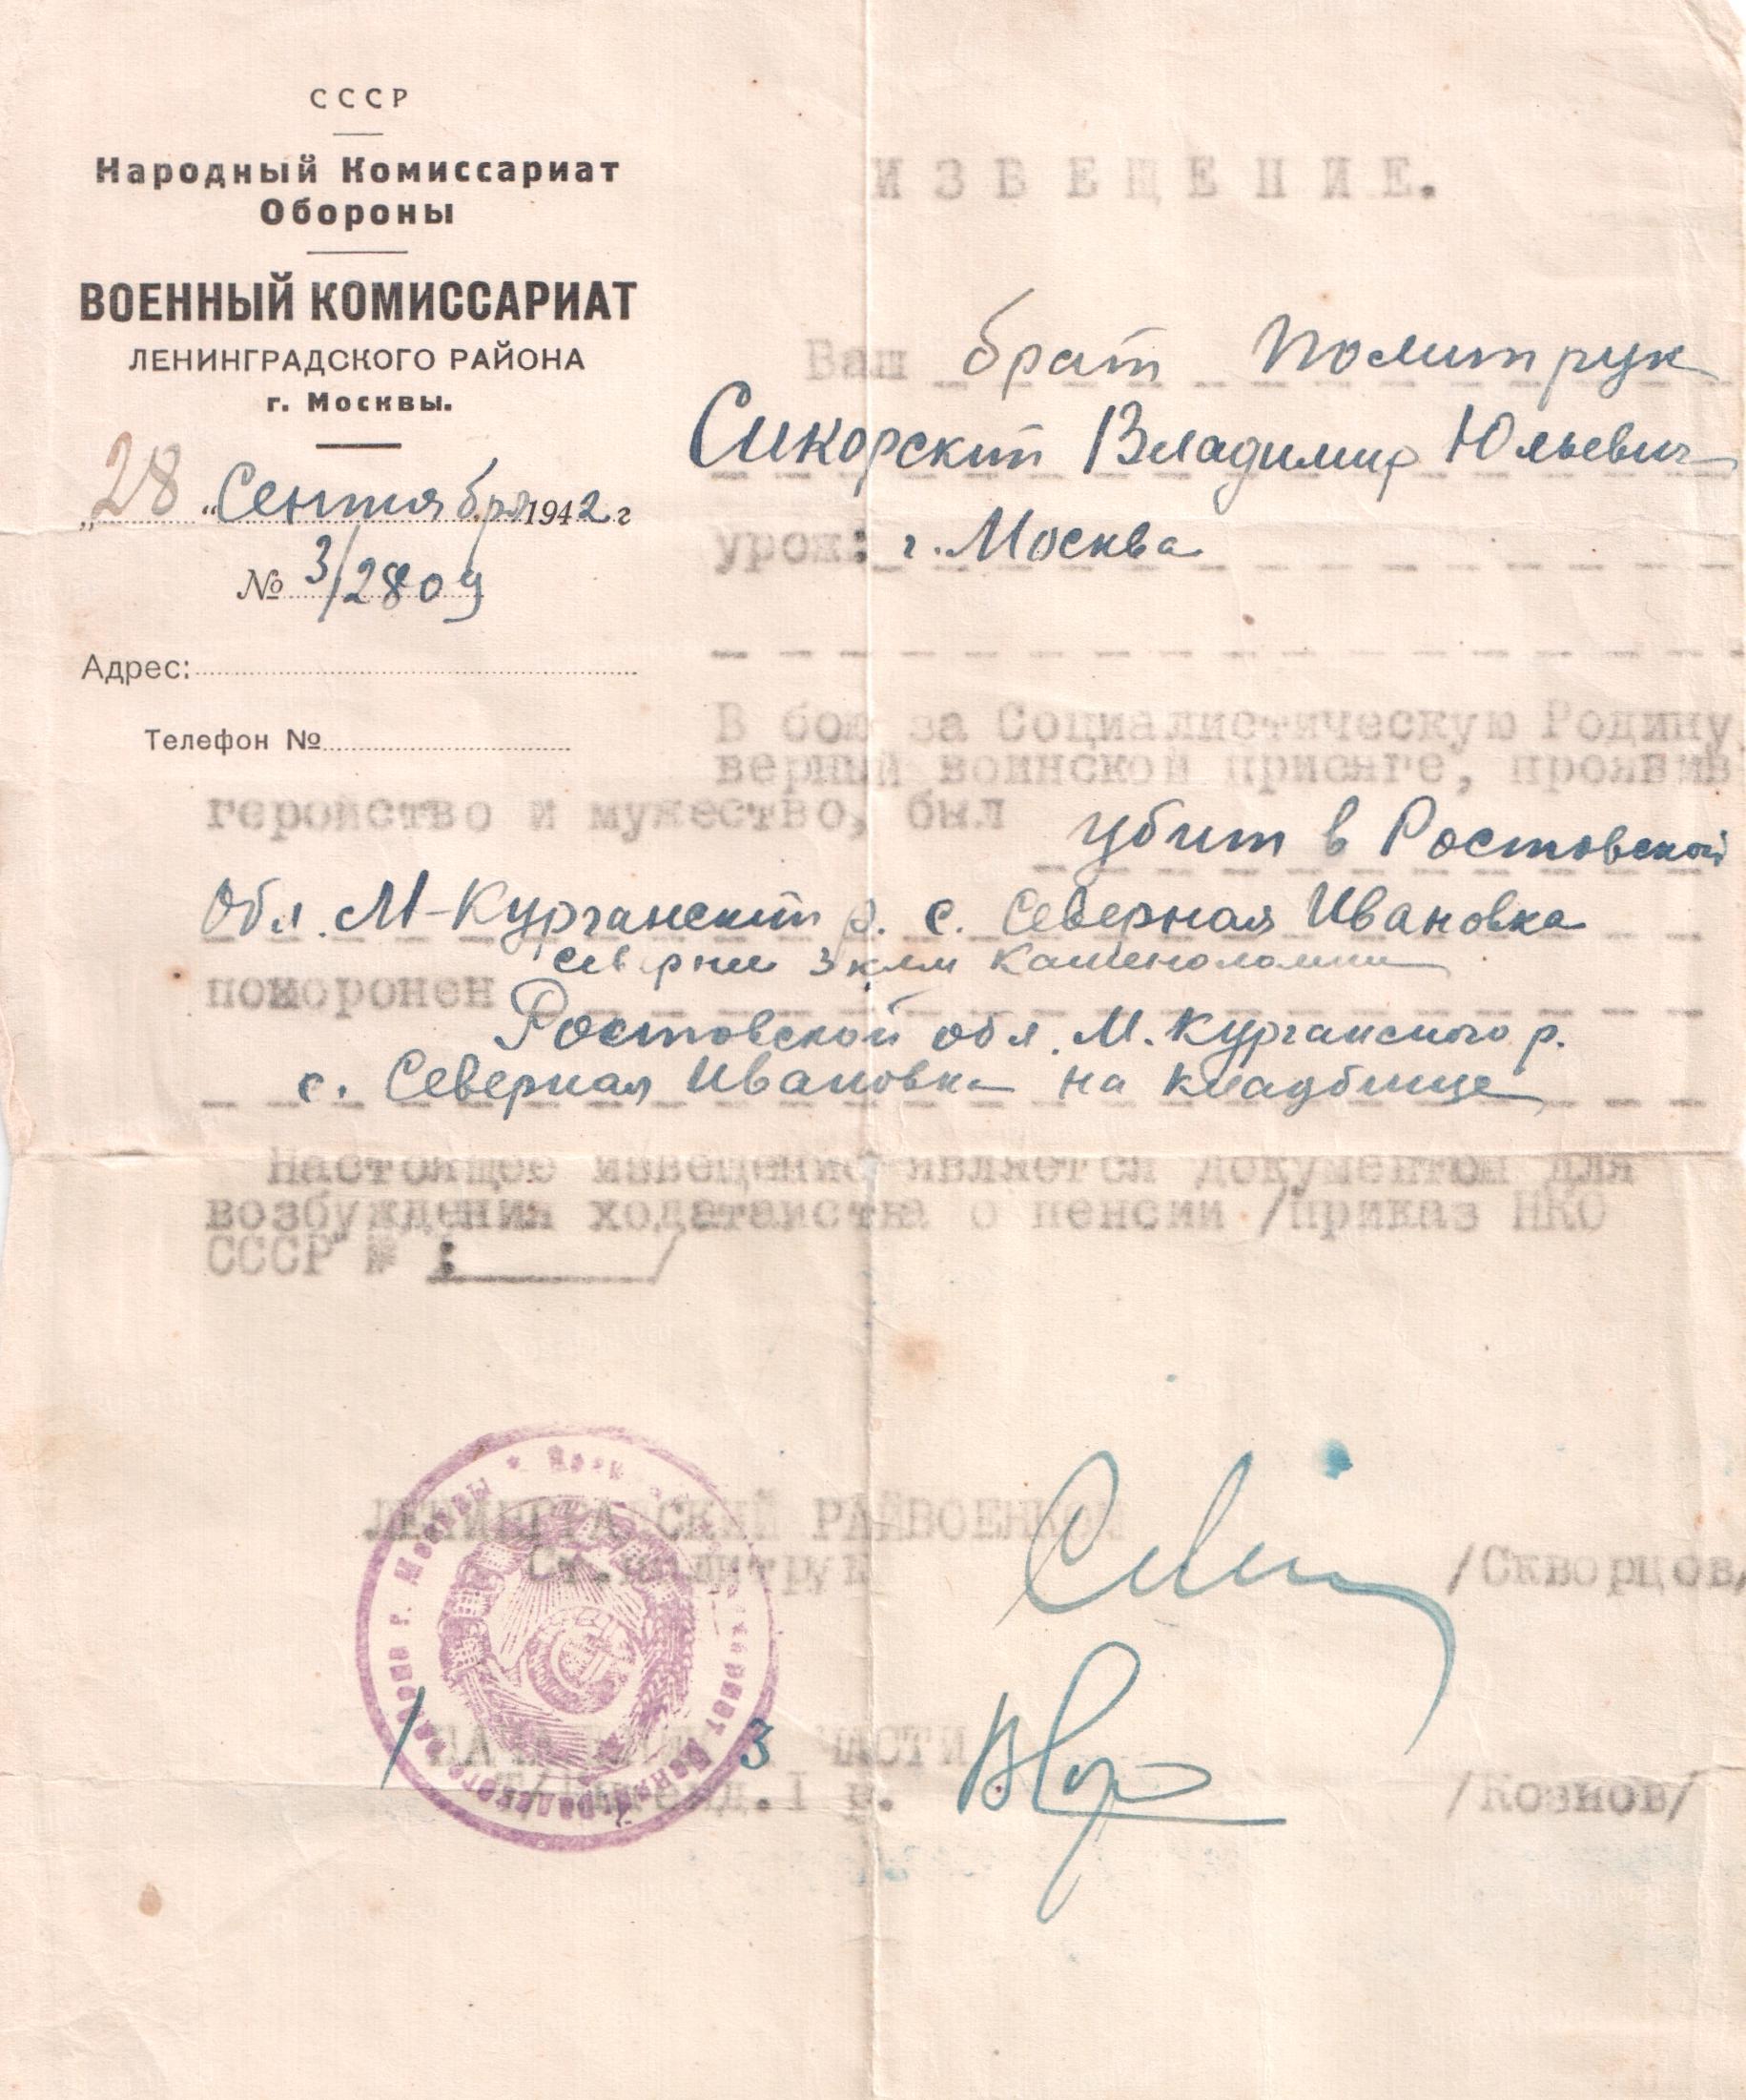 СССР
Народный Комиссариат
Обороны
ВОЕННЫЙ КОМИССАРИАТ
ЛЕНИНГРАДСКОГО РАЙОНА
г. Москвы.
„28“ Сентября 1942 г
№ 3/2809
Адрес:
Телефон №
ИЗВЕЩЕНИЕ.
Ваш брат Политрук
Сикорский Владимир Юльевич
урож: г. Москва
В бою за Социалистическую Родину,
верный воинской присяге, проявив
геройство и мужество, был убит в Ростовской
обл. М-Курганский р. с. Северная Ивановка
севернее 3 клм Каменоломни
похоронен
Ростовской обл. М. Курганского р.
с. Северная Ивановка на кладбище
Настоящее извещение является документом для
возбуждения ходатайства о пенсии /приказ НКО
СССР №
ЛЕНИНГРАДСКИЙ РАЙВОЕНКОМ
Ст.политрук /Скворцов/
НАЧАЛЬНИК 3 ЧАСТИ
Т/Интенд.I р. /Кознов/